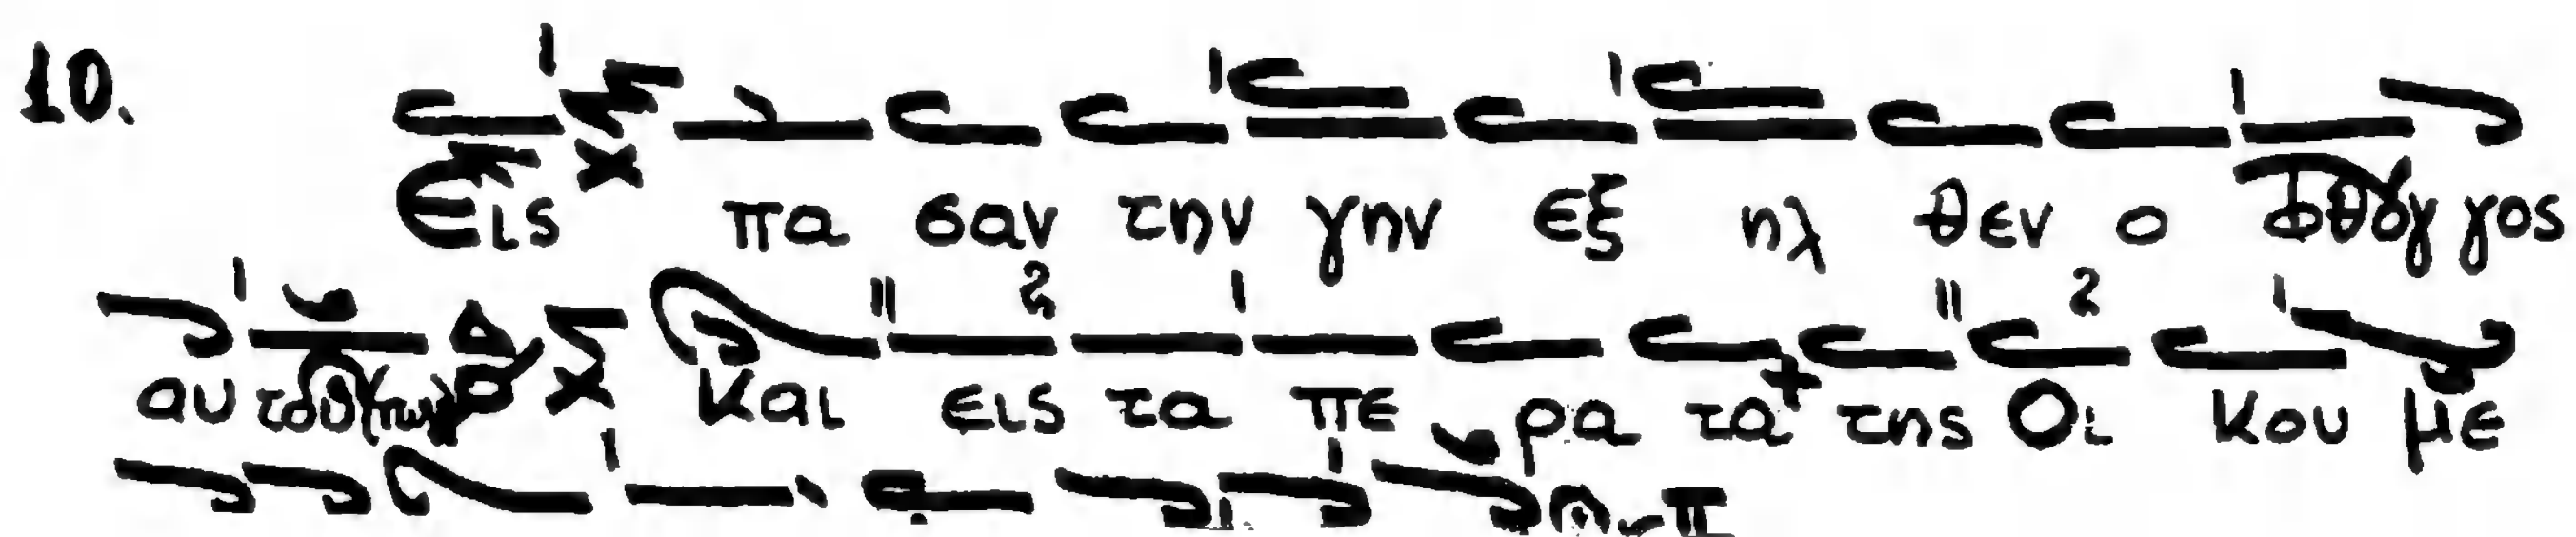 10.
Εις πα σαν την γην εξ ηλ θεν ο φθογ γος
αυ του και εις τα πε ρα τα της Οι κου με